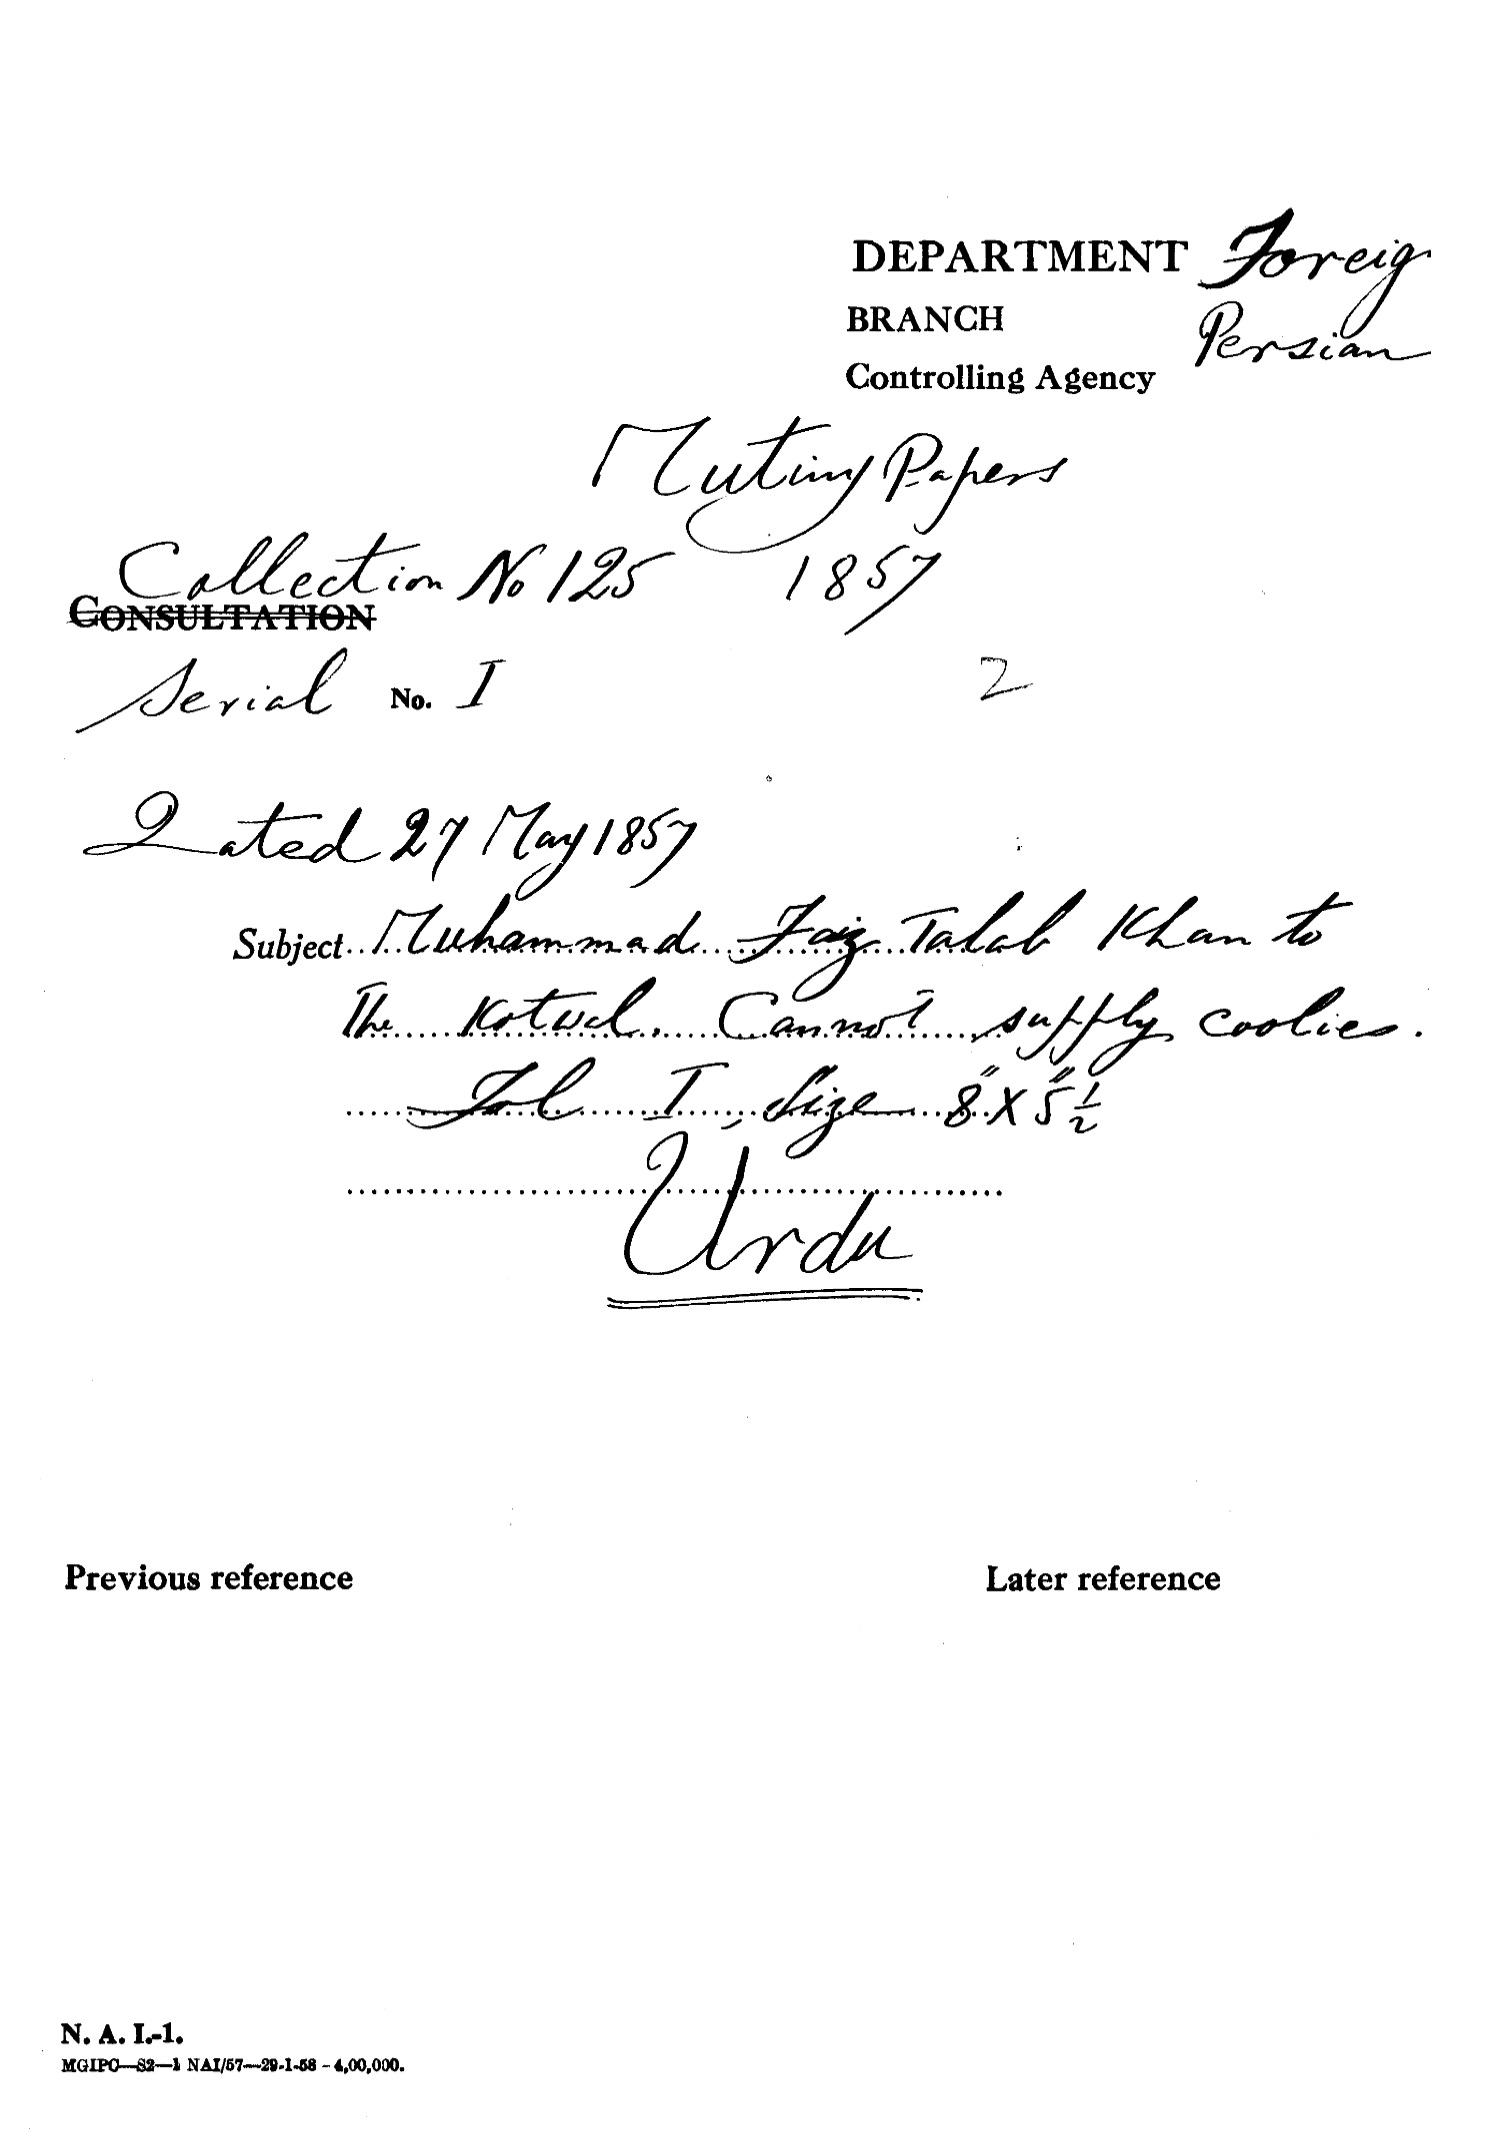 DEPARTMENT Foreig
BRANCH Persian
Controlling Agency
Mutiny Papers
Collection No 125 1857
CONSULTATION
Serial No. I 2
Dated 27 May 1857
Subject Muhammad Faiz Talab Khan to
The Kotwal. Cannot supply coolies.
Fol I, Size 8" X 5" ½
Urdu
Previous reference Later reference
N. A. I.-1.
MGIPC—S2—1 NAI/57—29-1-58 - 4,00,000.